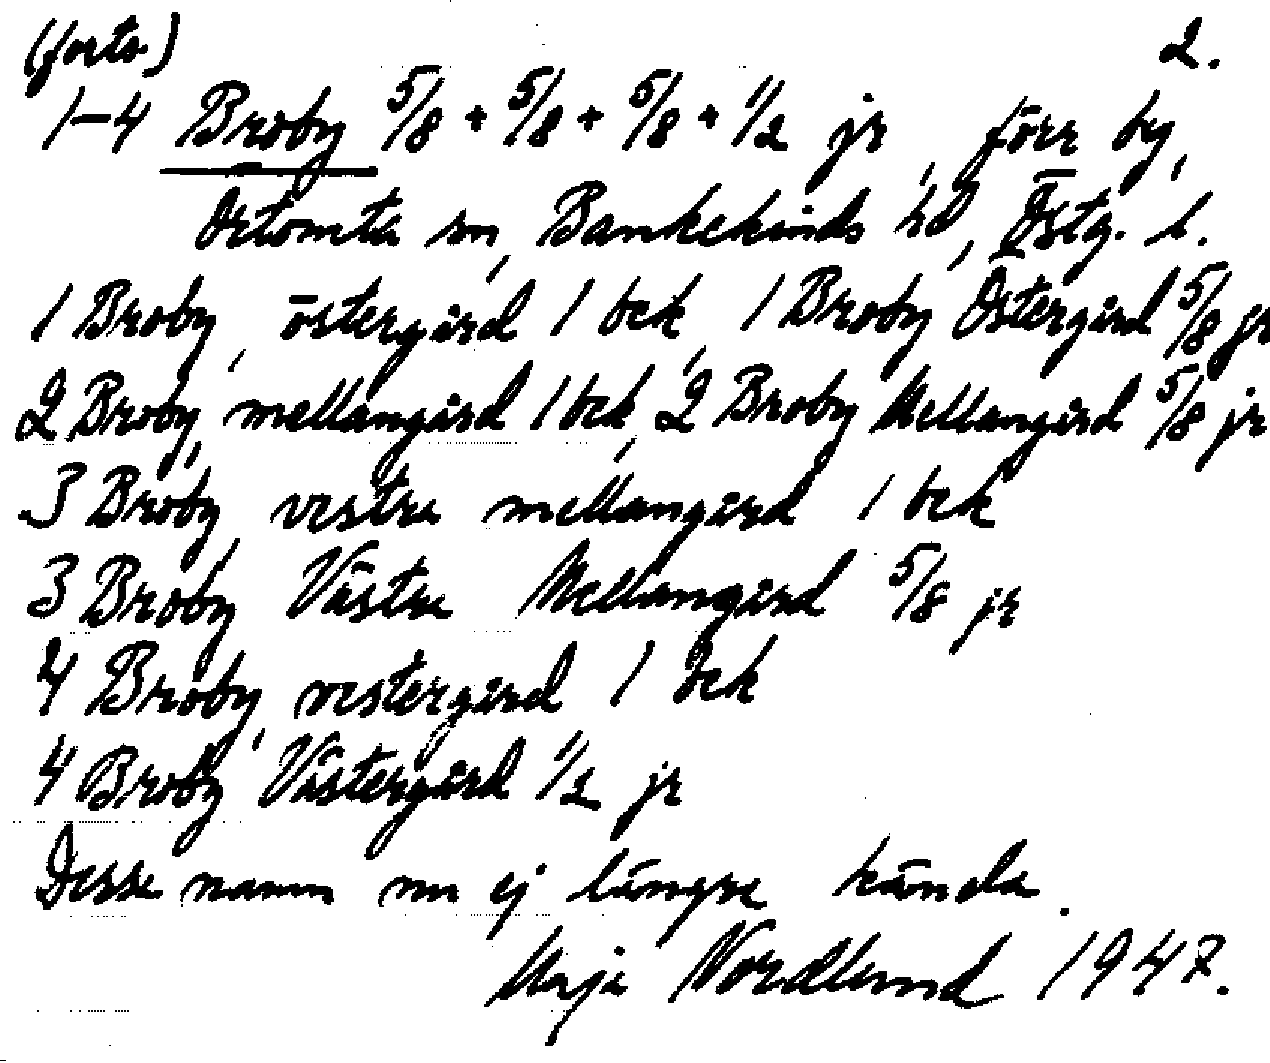 (forts.) 2.
1-4 Broby 5/8 + 5/8 + 5/8 + 1/2 jr, förr by,
Örtomta sn, Bankekinds hd, Östg. l.
1 Broby, östergård 1 bek, 1 Broby Östergård 5/8 jr
2 Broby, mellangård 1 bek, 2 Broby Mellangård 5/8 jr
3 Broby, vestra mellangård 1 bek
3 Broby Västra Mellangård 5/8 jr
4 Broby, vestergård 1 bek
4 Broby Västergård 1/2 jr
Desse namn nu ej längre kända.
Maja Nordlund 1947.